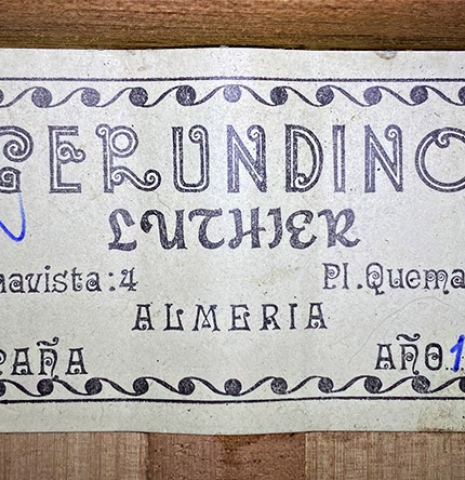 GERUNDINO
LUTHIER
navista:4 Pl.Quema
ALMERIA
PAÑA AÑO 1